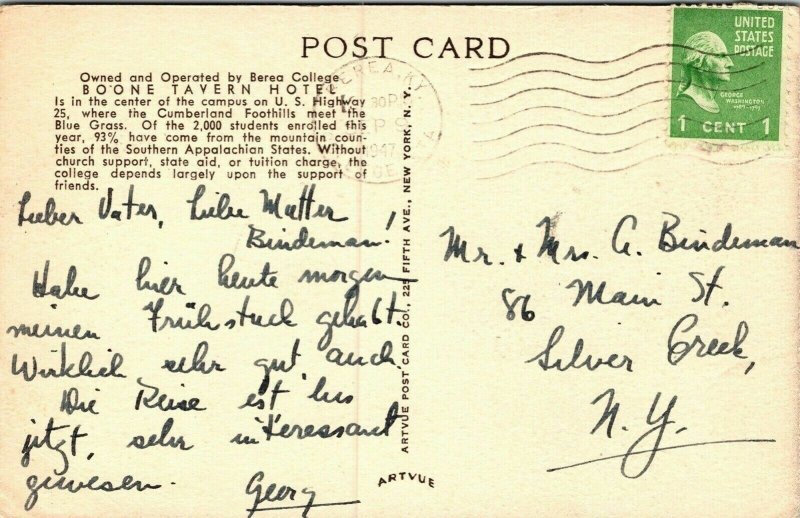 POST CARD
Owned and Operated by Berea College
BOONE TAVERN HOTEL
Is in the center of the campus on U. S. Highway
25, where the Cumberland Foothills meet the
Blue Grass. Of the 2,000 students enrolled this
year, 93% have come from the mountain coun-
ties of the Southern Appalachian States. Without
church support, state aid, or tuition charge, the
college depends largely upon the support of
friends.
Lieber Vater, Liebe Mutter
Bindeman!
Habe hier heute morgen
meinen Frühstuck gehabt.
Wirklich sehr gut auch.
Die Reise ist bis
jetzt, sehr interessant
gewesen.
Georg
BEREA, KY.
30 P
1947
ARTVUE POST CARD CO., 225 FIFTH AVE., NEW YORK, N. Y.
ARTVUE
UNITED
STATES
POSTAGE
GEORGE
WASHINGTON
1 CENT 1
Mr. & Mrs. A. Bindeman
86 Main St.
Silver Creek,
N.Y.